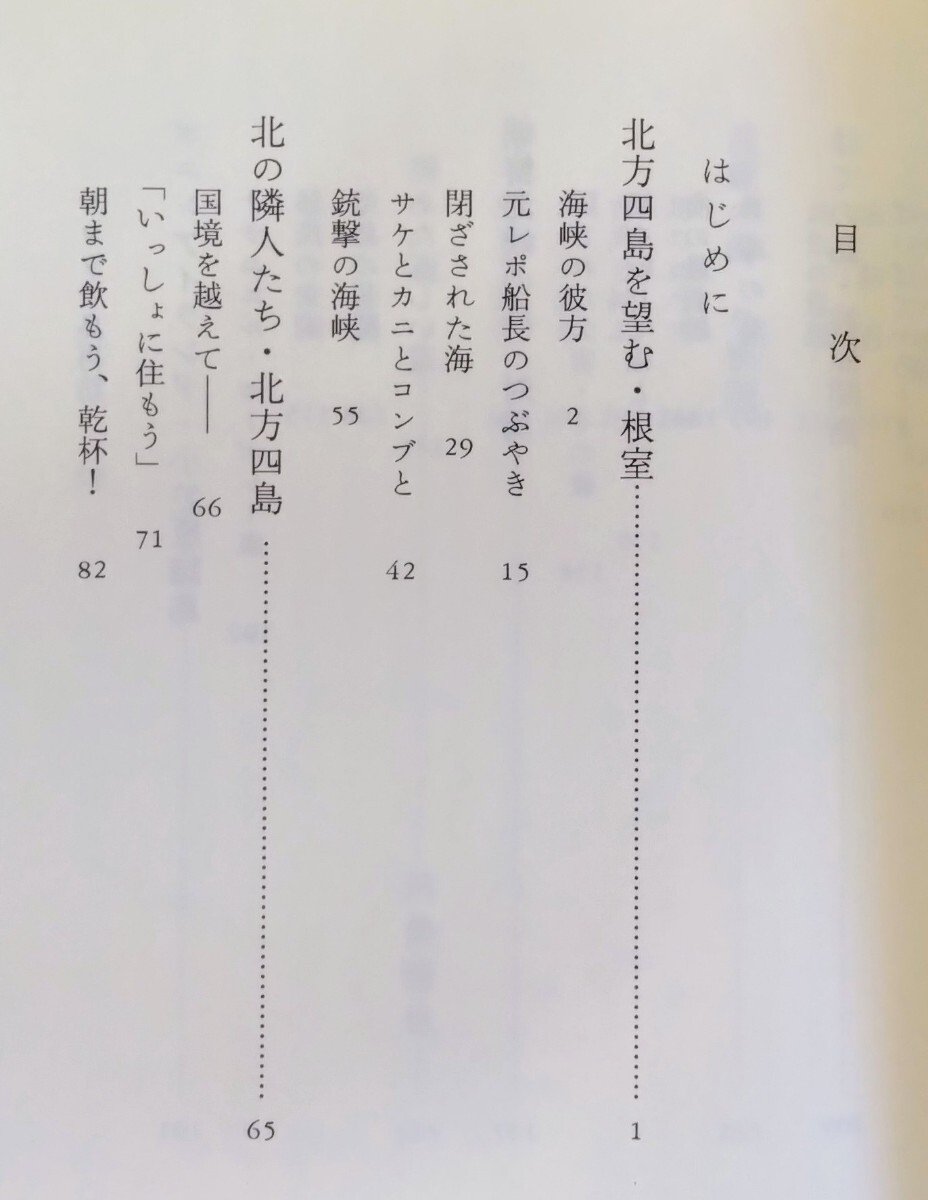 目次
はじめに
北方四島を望む・根室……………………………………1
海峡の彼方 2
元レポ船長のつぶやき 15
閉ざされた海 29
サケとカニとコンブと 42
銃撃の海峡 55
北の隣人たち・北方四島……………………………………65
国境を越えて―― 66
「いっしょに住もう」 71
朝まで飲もう、乾杯! 82